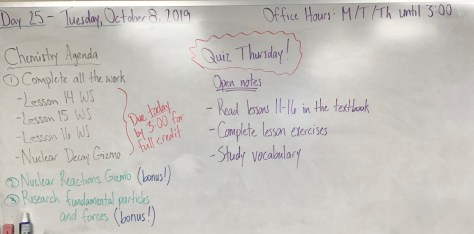 Day 25 - Tuesday, October 8, 2019
Office Hours: M/T/Th until 3:00
Chemistry Agenda
① Complete all the work
- Lesson 14 WS
- Lesson 15 WS
- Lesson 16 WS
- Nuclear Decay Gizmo
Due today
by 3:00 for
full credit
② Nuclear Reactions Gizmo (bonus!)
③ Research fundamental particles
and forces (bonus!)
Quiz Thursday!
Open notes
- Read lessons 11-16 in the textbook
- Complete lesson exercises
- Study vocabulary